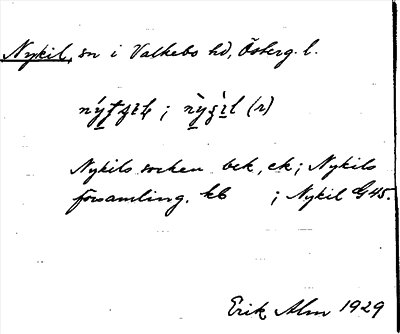 Nykil, sn i Valkebo hd, Österg. l.
Nykils socken bek, ek; Nykils
församling, kb ; Nykil G45.
Erik Alm 1929